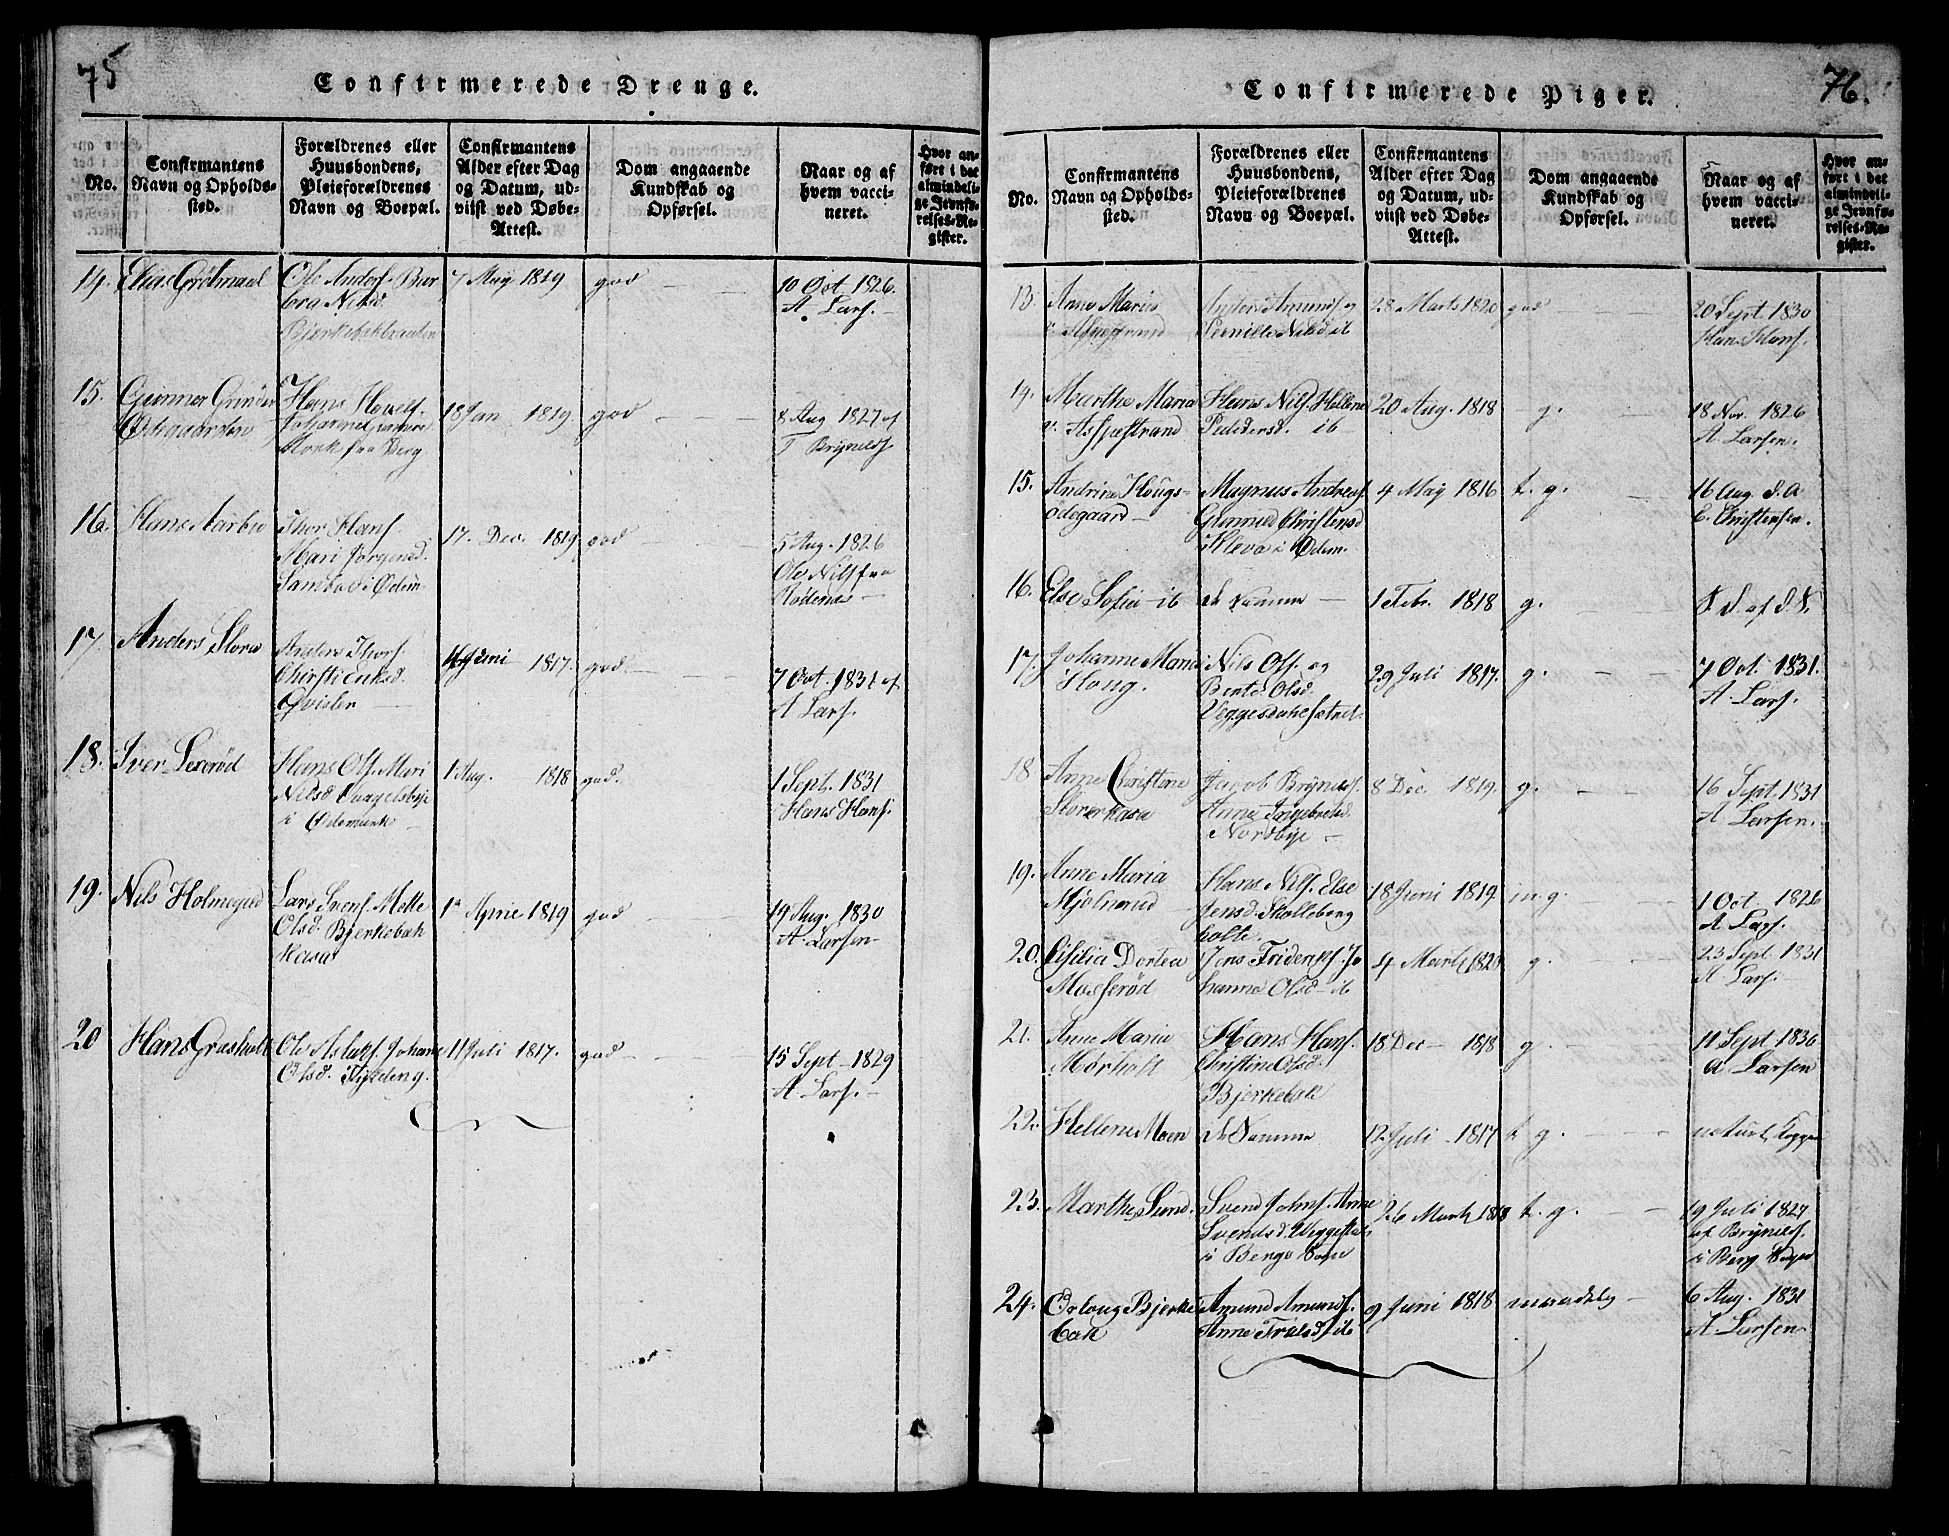 75
Confirmerede Drenge.
No.
Confirmantens
Navn og Opholds-
sted.
Forældrenes eller
Huusbondens,
Pleieforældrenes
Navn og Boepæl.
Confirmantens
Alder efter Dag
og Datum, ud-
viist ved Døbe-
Attest.
Dom angaaende
Kundskab og
Opførsel.
Naar og af
hvem vacci-
neret.
Hvor an-
ført i det
almindeli-
ge Jevnfø-
relses-Re-
gister.
14. Elias Grølmael
Ole Anders. Bar
bra Nilsd
Bjerkebekbraaten
7 May 1819
god
10 Oct. 1826.
A. Lars.
15. Gunner Grinder
Ødegaarden
Hans Hovels.
fra Berg
18 Jan 1819
god
8 Aug 1827 af
T Brynilds
16. Hans Aarbu
Thor Hans
Mari Jørgensd.
Sambøl i Ødem
17. Dec. 1819
god
5 Aug. 1826
Ole Nils fra
Rødenes
17. Anders Flora
Anders Thors.
Chirsti Eriksd.
Qvislen
4 Juni 1817.
god.
7 Oct. 1831 af
A Lars.
18. Iver Lexerød
Hans Ols. Mari
Nilsd
i Ødemark
1 Aug. 1818
god.
1 Sept. 1831
Hans Hans.
19. Nils Holmegied
Lars Svens. Mette
Olsd. Bjerkebæk
Hasa
1ª Aprie 1819
god
19 Aug. 1830
A. Larsen
20 Hans Grasholt
Ole Aslaks. Johane
Olsd.
11 Juli 1817.
god
15 Sept 1829
A Lars.
76.
Confirmerede Piger.
No.
Confirmantens
Navn og Opholds-
sted.
Forældrenes eller
Huusbondens,
Pleieforældrenes
Navn og Boepæl.
Confirmantens
Alder efter Dag
og Datum, ud-
viist ved Døbe-
Attest.
Dom angaaende
Kundskab og
Opførsel.
Naar og af
hvem vacci-
neret.
Hvor an-
ført i det
almindeli-
ge Jevnfø-
relses-Re-
gister.
13. Anne Marie
v. Aspestrand
Anders Amunds. og
Pernille Nilsd ib
28 Marts 1820
god
20 Sept. 1830
Hans Hans.
14. Marthe Maria
v. Aspestrand
Hans Nils. Hellene
Pedersd. ib
20 Aug. 1818
g.
18 Nov. 1826
A. Larsen.
15. Andrine Hougs-
ødegaard
Magnus Andreas.
Christensd
Kleva i Ødem.
4 May 1816
t. g.
16 Aug. d. A
C. Christensen.
16. Else Sofia ib
De Samme
1 Feb. 1818
g.
d. d. af d. S.
17. Johanne Maria
Houg.
Nils Ols. og
Berte Olsd.
29 Juli 1817.
g.
7 Oct. 1831.
A. Lars.
18 Anne Christine
Storerkasa
Jacob Brynilds.
Anne Ingebretsd.
Nordbye
8 Dec. 1819.
g.
16 Sept. 1831
A. Larsen.
19. Anne Maria
Mjølnerud
Hans Nils. Else
Jensd. Skolleborg
holte.
18 Juni 1819.
m. g.
1 Oct. 1826
A Lars.
20. Cisilia Dortea
Mosserød
Jens Friderichs. Jo
hanne Olsd ib
4 Marts 1820
g.
23 Sept 1831
A Lars.
21. Anne Maria
Mørholt
Hans Hans.
Christine Olsd.
Bjerkebæk
18 Dec 1818
g.
11 Sept 1830
A Larsen
22. Hellene Moen
De Samme
12 Juli 1817
t g.
naturl. Kopper
23. Marthe Lund.
Svend Johns. Anne
Svendsd.
i Bergs Sogn
26 Marts 1818
t. g.
19 Juli 1827
af Brynilds.
i Berg Sogn
24. Orloug Bjerke
bæk
Amund Amunds.
Anne Trulsd. ib
9 Juni 1818
maadelig
6 Aug. 1831
A. Larsen